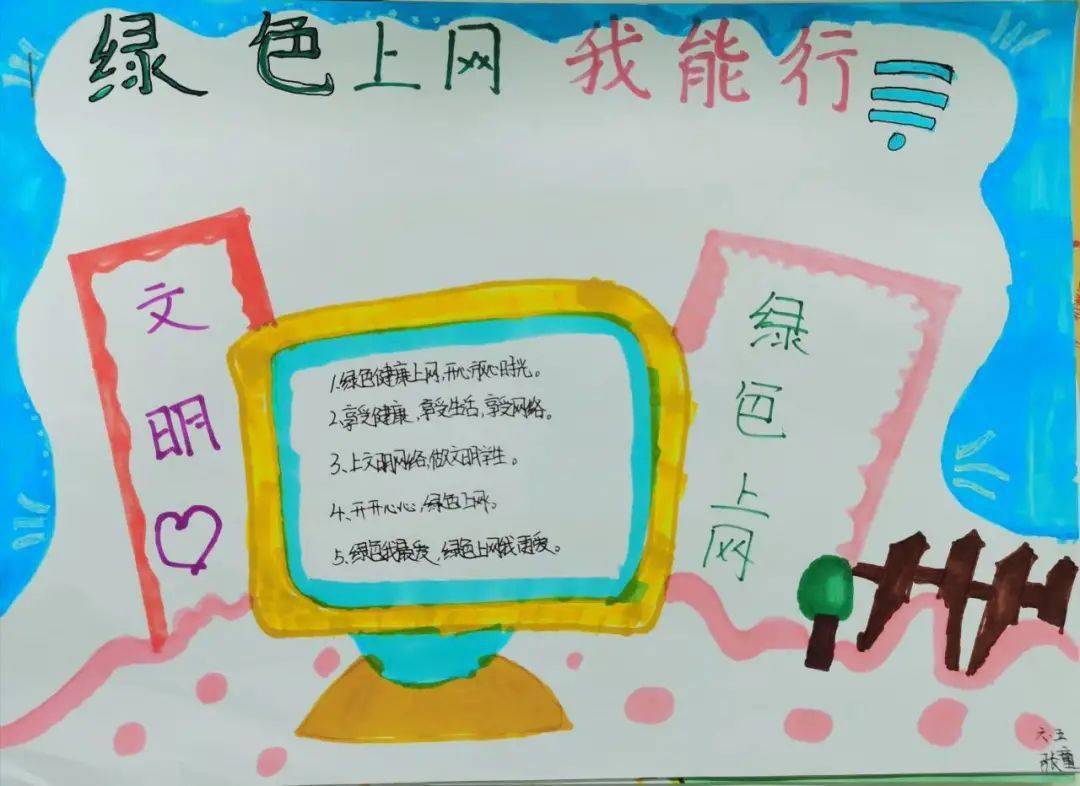 绿色上网 我能行
文明
1.绿色健康上网,开心放心时光。
2.享受健康,享受生活,享受网络。
3、上文明网络,做文明学生。
4、开开心心,绿色上网。
5、绿色我最爱,绿色上网我更爱。
绿色上网
六.五
张童